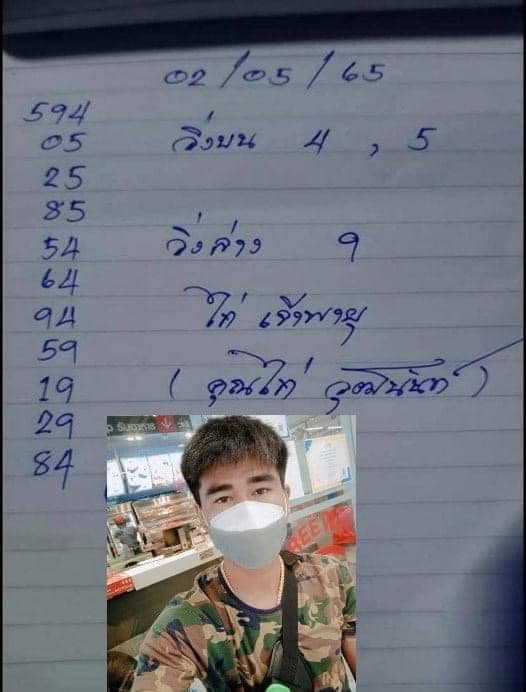 02/05/65
594
05 วิ่งบน 4 , 5
25
85
54 วิ่งล่าง 9
64
94 ไก่ เจ้าพายุ
59
19 (คุณไก่ วุฒินันท์)
29
84